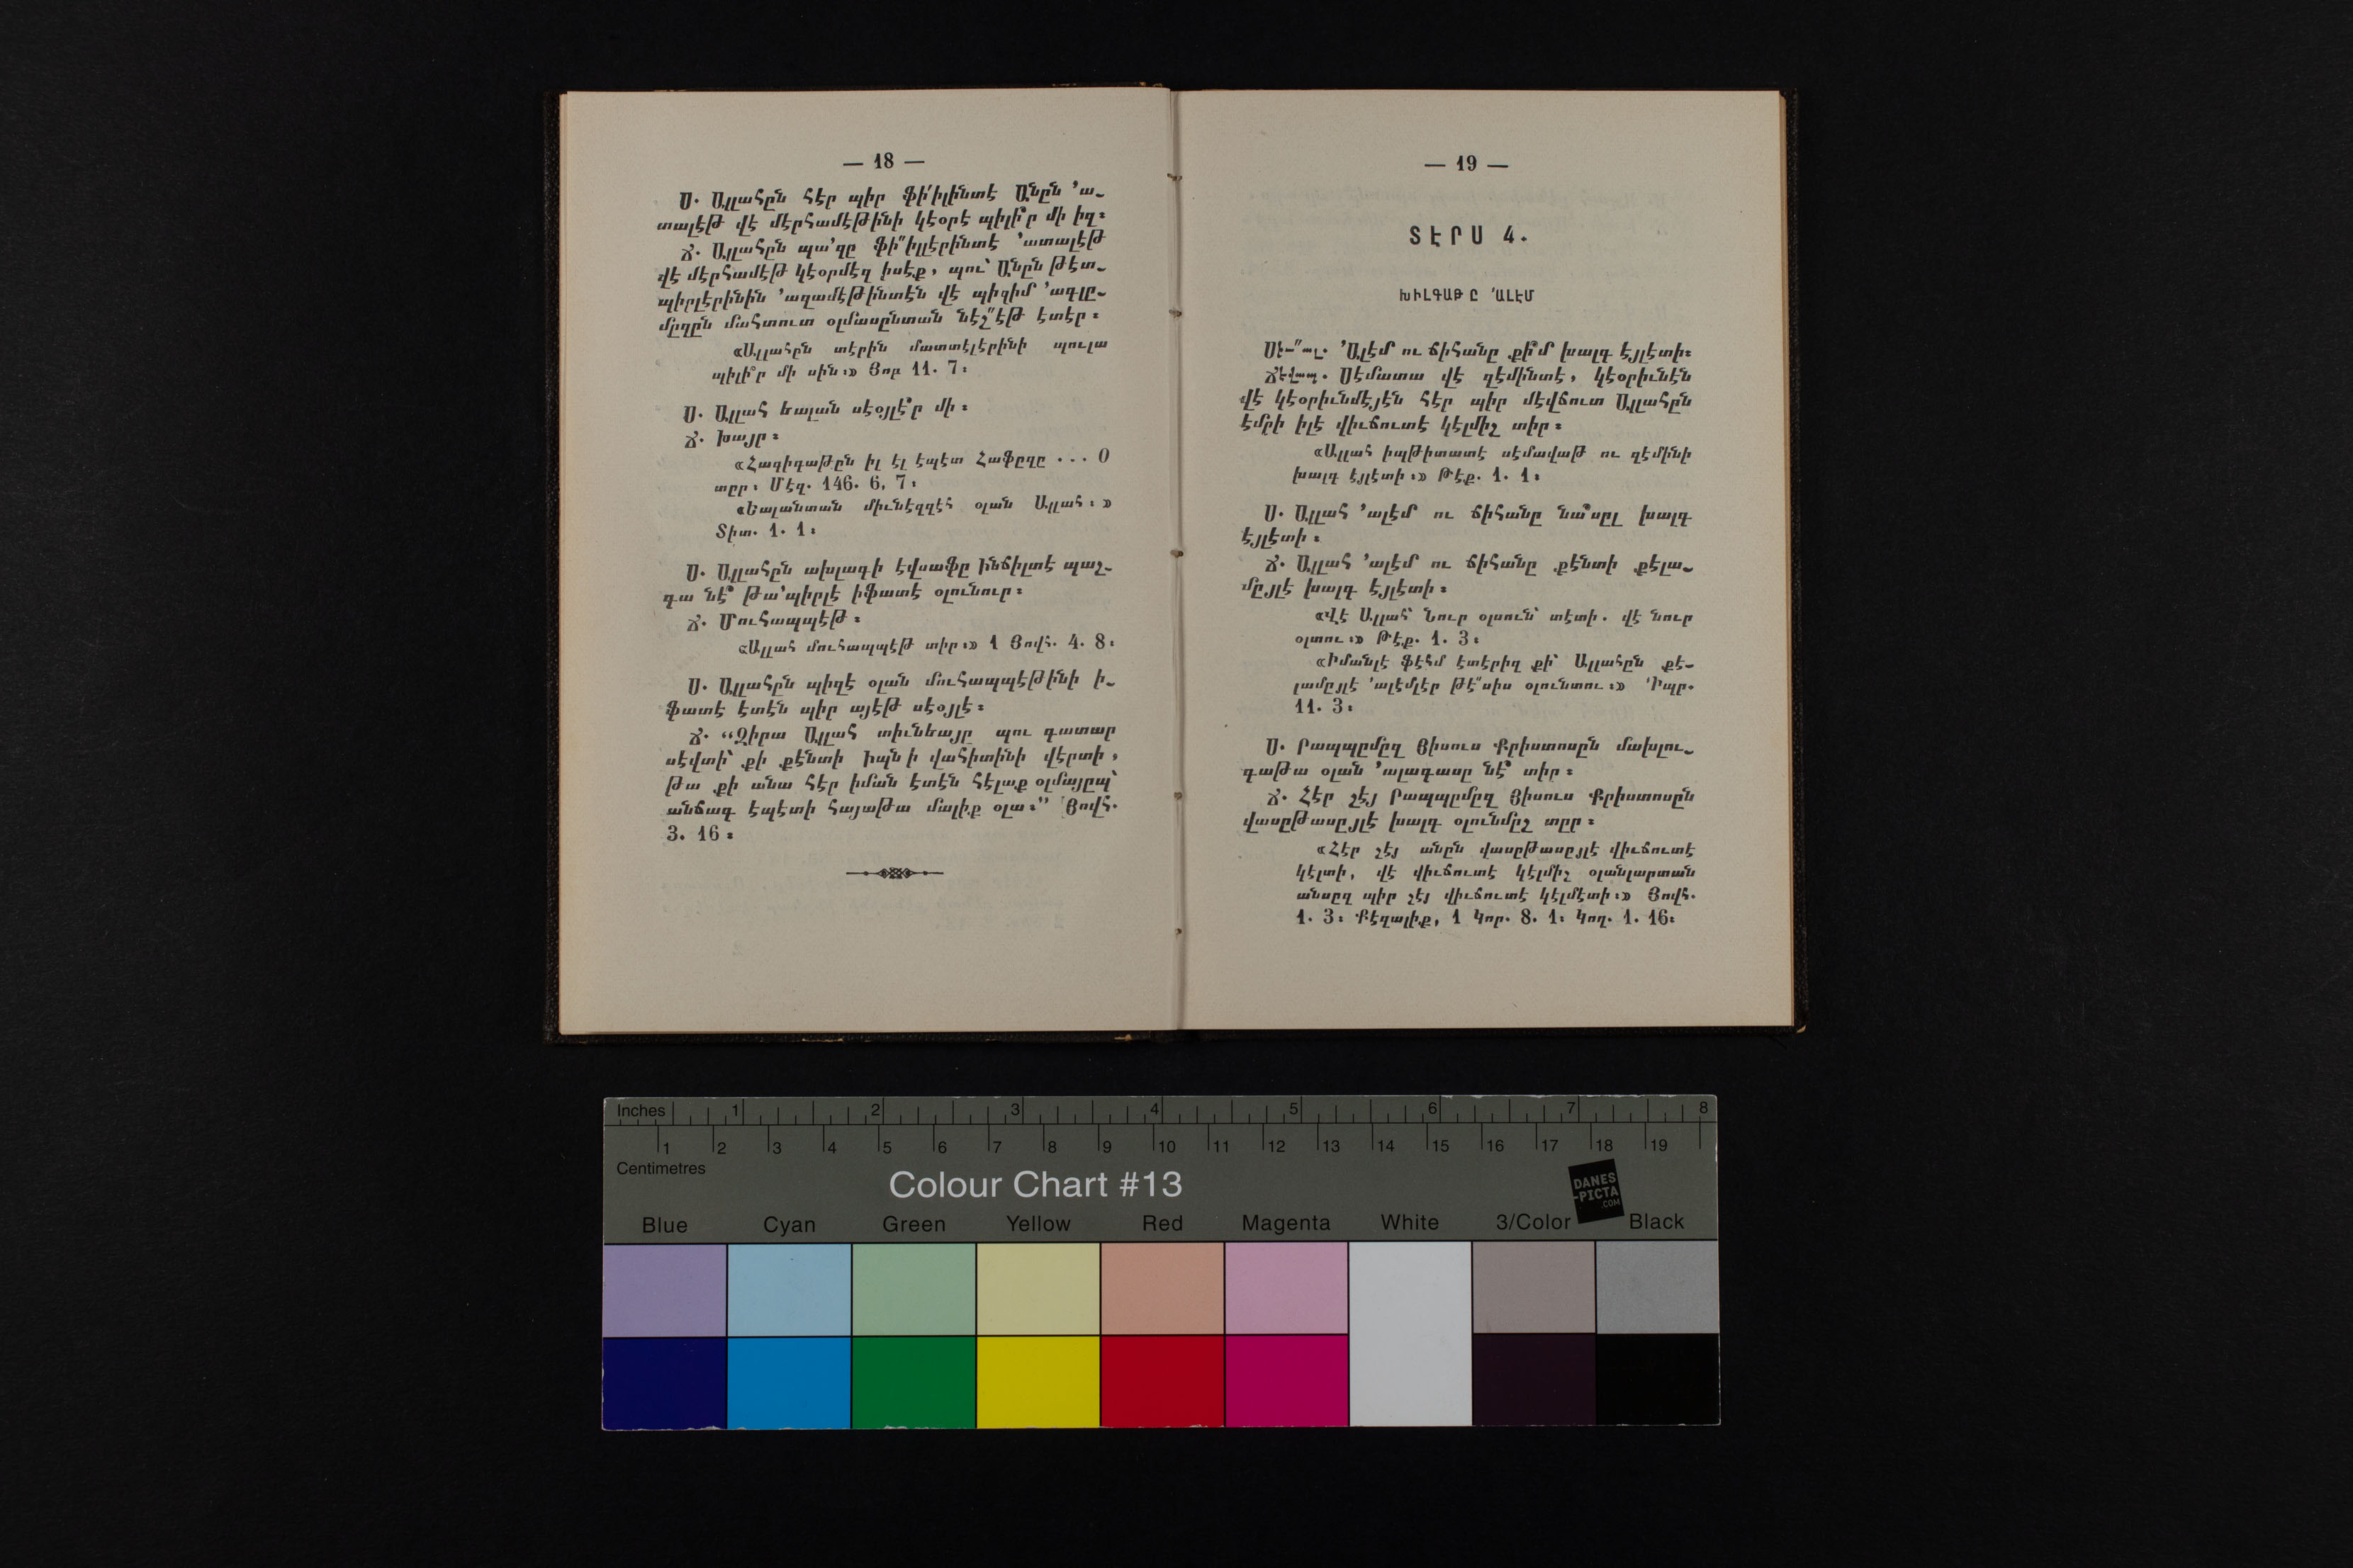 — 18 —
Ս. Ալլահըն հէր պիր ֆի՛իլինտէ Անըն ’ա-
տալէթ վէ մէրհամէթինի կէօրէ պիլի՞ր մի իզ։
Ճ. Ալլահըն պա՚զը ֆի՛՛իլլէրինտէ ’ատալէթ
վէ մէրհամէթ կէօրմէզ իսէք, պու՝ Անըն թէտ-
պիրլէրինին ’ազամէթինտէն վէ պիզիմ ’ագլը-
մըզըն մահտուտ օլմասընտան նէշ՛՛էթ էտէր։
«Ալլահըն տէրին մատտէլէրինի պուլա
պիլի՞ր մի սին։» Յոբ 11. 7։
Ս. Ալլահ եալան սէօյլէ՞ր մի։
Ճ. Խայր։
«Հագիգաթըն իլ էլ էպէտ Հաֆըզը ... Օ
տըր։ Մէզ. 146. 6, 7։
«Եալանտան միւնէզզէհ օլան Ալլահ։»
Տիտ. 1. 1։
Ս. Ալլահըն ախլագի էվսաֆը Ինճիլտէ պաշ-
գա նէ՞ թա՚պիրլէ իֆատէ օլունուր։
Ճ. Մուհապպէթ։
«Ալլահ մուհապպէթ տիր։» 1 Յովհ. 4. 8։
Ս. Ալլահըն պիզէ օլան մուհապպէթինի ի-
ֆատէ էտէն պիր այէթ սէօյլէ։
Ճ. “Զիրա Ալլահ տիւնեայը պու գատար
սէվտի՝ քի քէնտի Իպն ի վահիտինի վէրտի,
թա քի անա հէր իման էտէն հէլաք օլմայըպ՝
անճագ էպէտի հայաթա մալիք օլա։” Յովհ.
3. 16։
— 19 —
ՏԷՐՍ 4.
ԽԻԼԳԱԹԸ ’ԱԼԷՄ
Սէ-՛՛ալ. ’Ալէմ ու ճիհանը քի՞մ խալգ էյլէտի։
Ճէվապ. Սէմատա վէ զէմինտէ, կէօրիւնէն
վէ կէօրիւնմէյէն հէր պիր մէվճուտ Ալլահըն
էմրի իլէ վիւճուտէ կէլմիշ տիր։
«Ալլահ իպթիտատէ սէմավաթ ու զէմինի
խալգ էյլէտի։» Թէք. 1. 1։
Ս. Ալլահ ’ալէմ ու ճիհանը նա՞սըլ խալգ
էյլէտի։
Ճ. Ալլահ ’ալէմ ու ճիհանը քէնտի քէլա-
մըյլէ խալգ էյլէտի։
«Վէ Ալլահ՝ Նուր օլսուն՝ տէտի. վէ նուր
օլտու։» Թէք. 1. 3։
«Իմանլէ ֆէհմ էտէրիզ քի՝ Ալլահըն քէ-
լամըյլէ ’ալէմլէր թէ՛՛սիս օլունտու։» ’Իպր.
11. 3։
Ս. Րապպըմըզ Յիսուս Քրիստոսըն մախլու-
գաթա օլան ’ալագասը նէ՞ տիր։
Ճ. Հէր շէյ Րապպըմըզ Յիսուս Քրիստոսըն
վասըթասըյլէ խալգ օլունմըշ տըր։
«Հէր շէյ անըն վասըթասըյլէ վիւճուտէ
կէլտի, վէ վիւճուտէ կէլմիշ օլանլարտան
անսըզ պիր շէյ վիւճուտէ կէլմէտի։» Յովհ.
1. 3։ Քէզալիք, 1 Կոր. 8. 1։ Կող. 1. 16։
Inches 1 2 3 4 5 6 7 8
1 2 3 4 5 6 7 8 9 10 11 12 13 14 15 16 17 18 19
Centimetres
Colour Chart #13
DANES
-PICTA
.COM
Blue Cyan Green Yellow Red Magenta White 3/Color Black